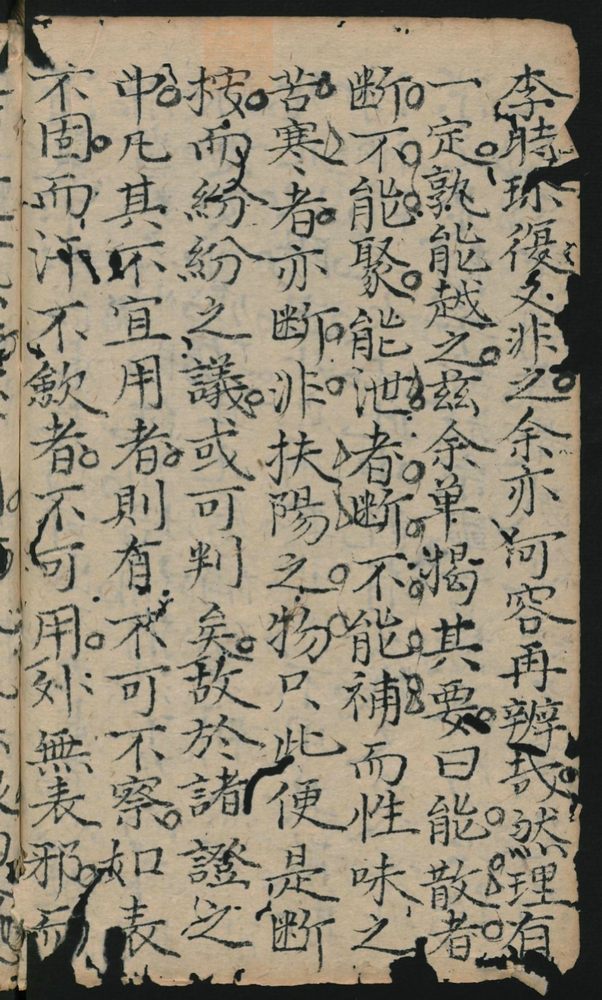 李時珍復又非之余亦何容再辨哉然理有
一定孰能越之茲余單揭其要曰能散者
断不能聚能泄者断不能補而性味之
苦寒者亦断非扶陽之物只此便是断
按而紛紛之議或可判矣故於諸證之
中凡其不宜用者則有不可不察如表
不固而汗不歛者不可用外無表邪而